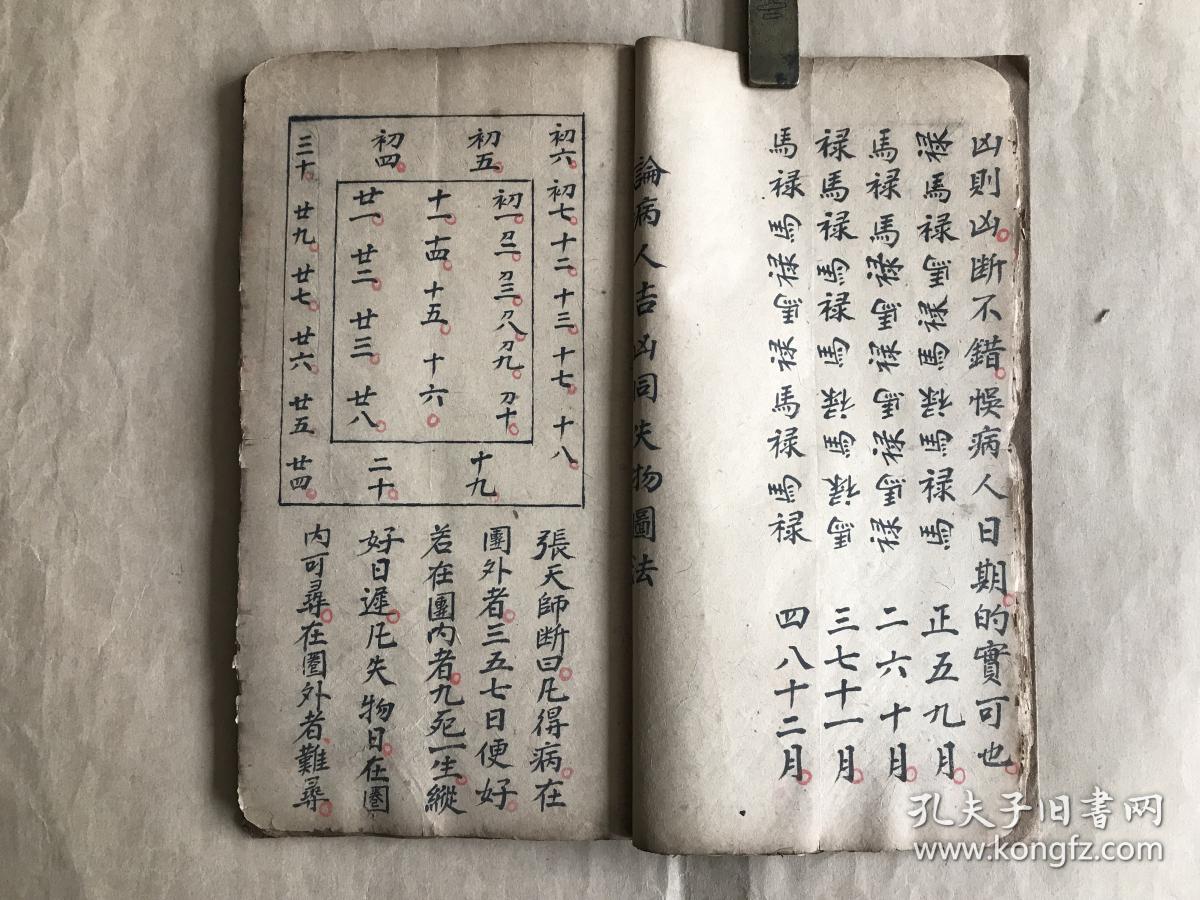 凶則凶断不錯悞病人日期的實可也
禄馬禄馬禄馬禄馬禄馬 正五九月
馬禄馬禄馬禄馬禄馬禄 二六十月
禄馬禄馬禄馬禄馬禄馬 三七十一月
馬禄馬禄馬禄馬禄馬禄 四八十二月
論病人吉凶同失物圖法
初六 初七 十二 十三 十七 十八
初五
初一 刀二 刀三 刀八 刀九 刀十
十九
十一 十四 十五 十六
初四
廿一 廿二 廿三 廿八
二十
三十 廿九 廿七 廿六 廿五 廿四
張天師断曰凡得病在
圈外者三五七日便好
若在圈内者九死一生縱
好日遲凡失物日在圈
内可尋在圈外者難尋
孔夫子旧书网
www.kongfz.com